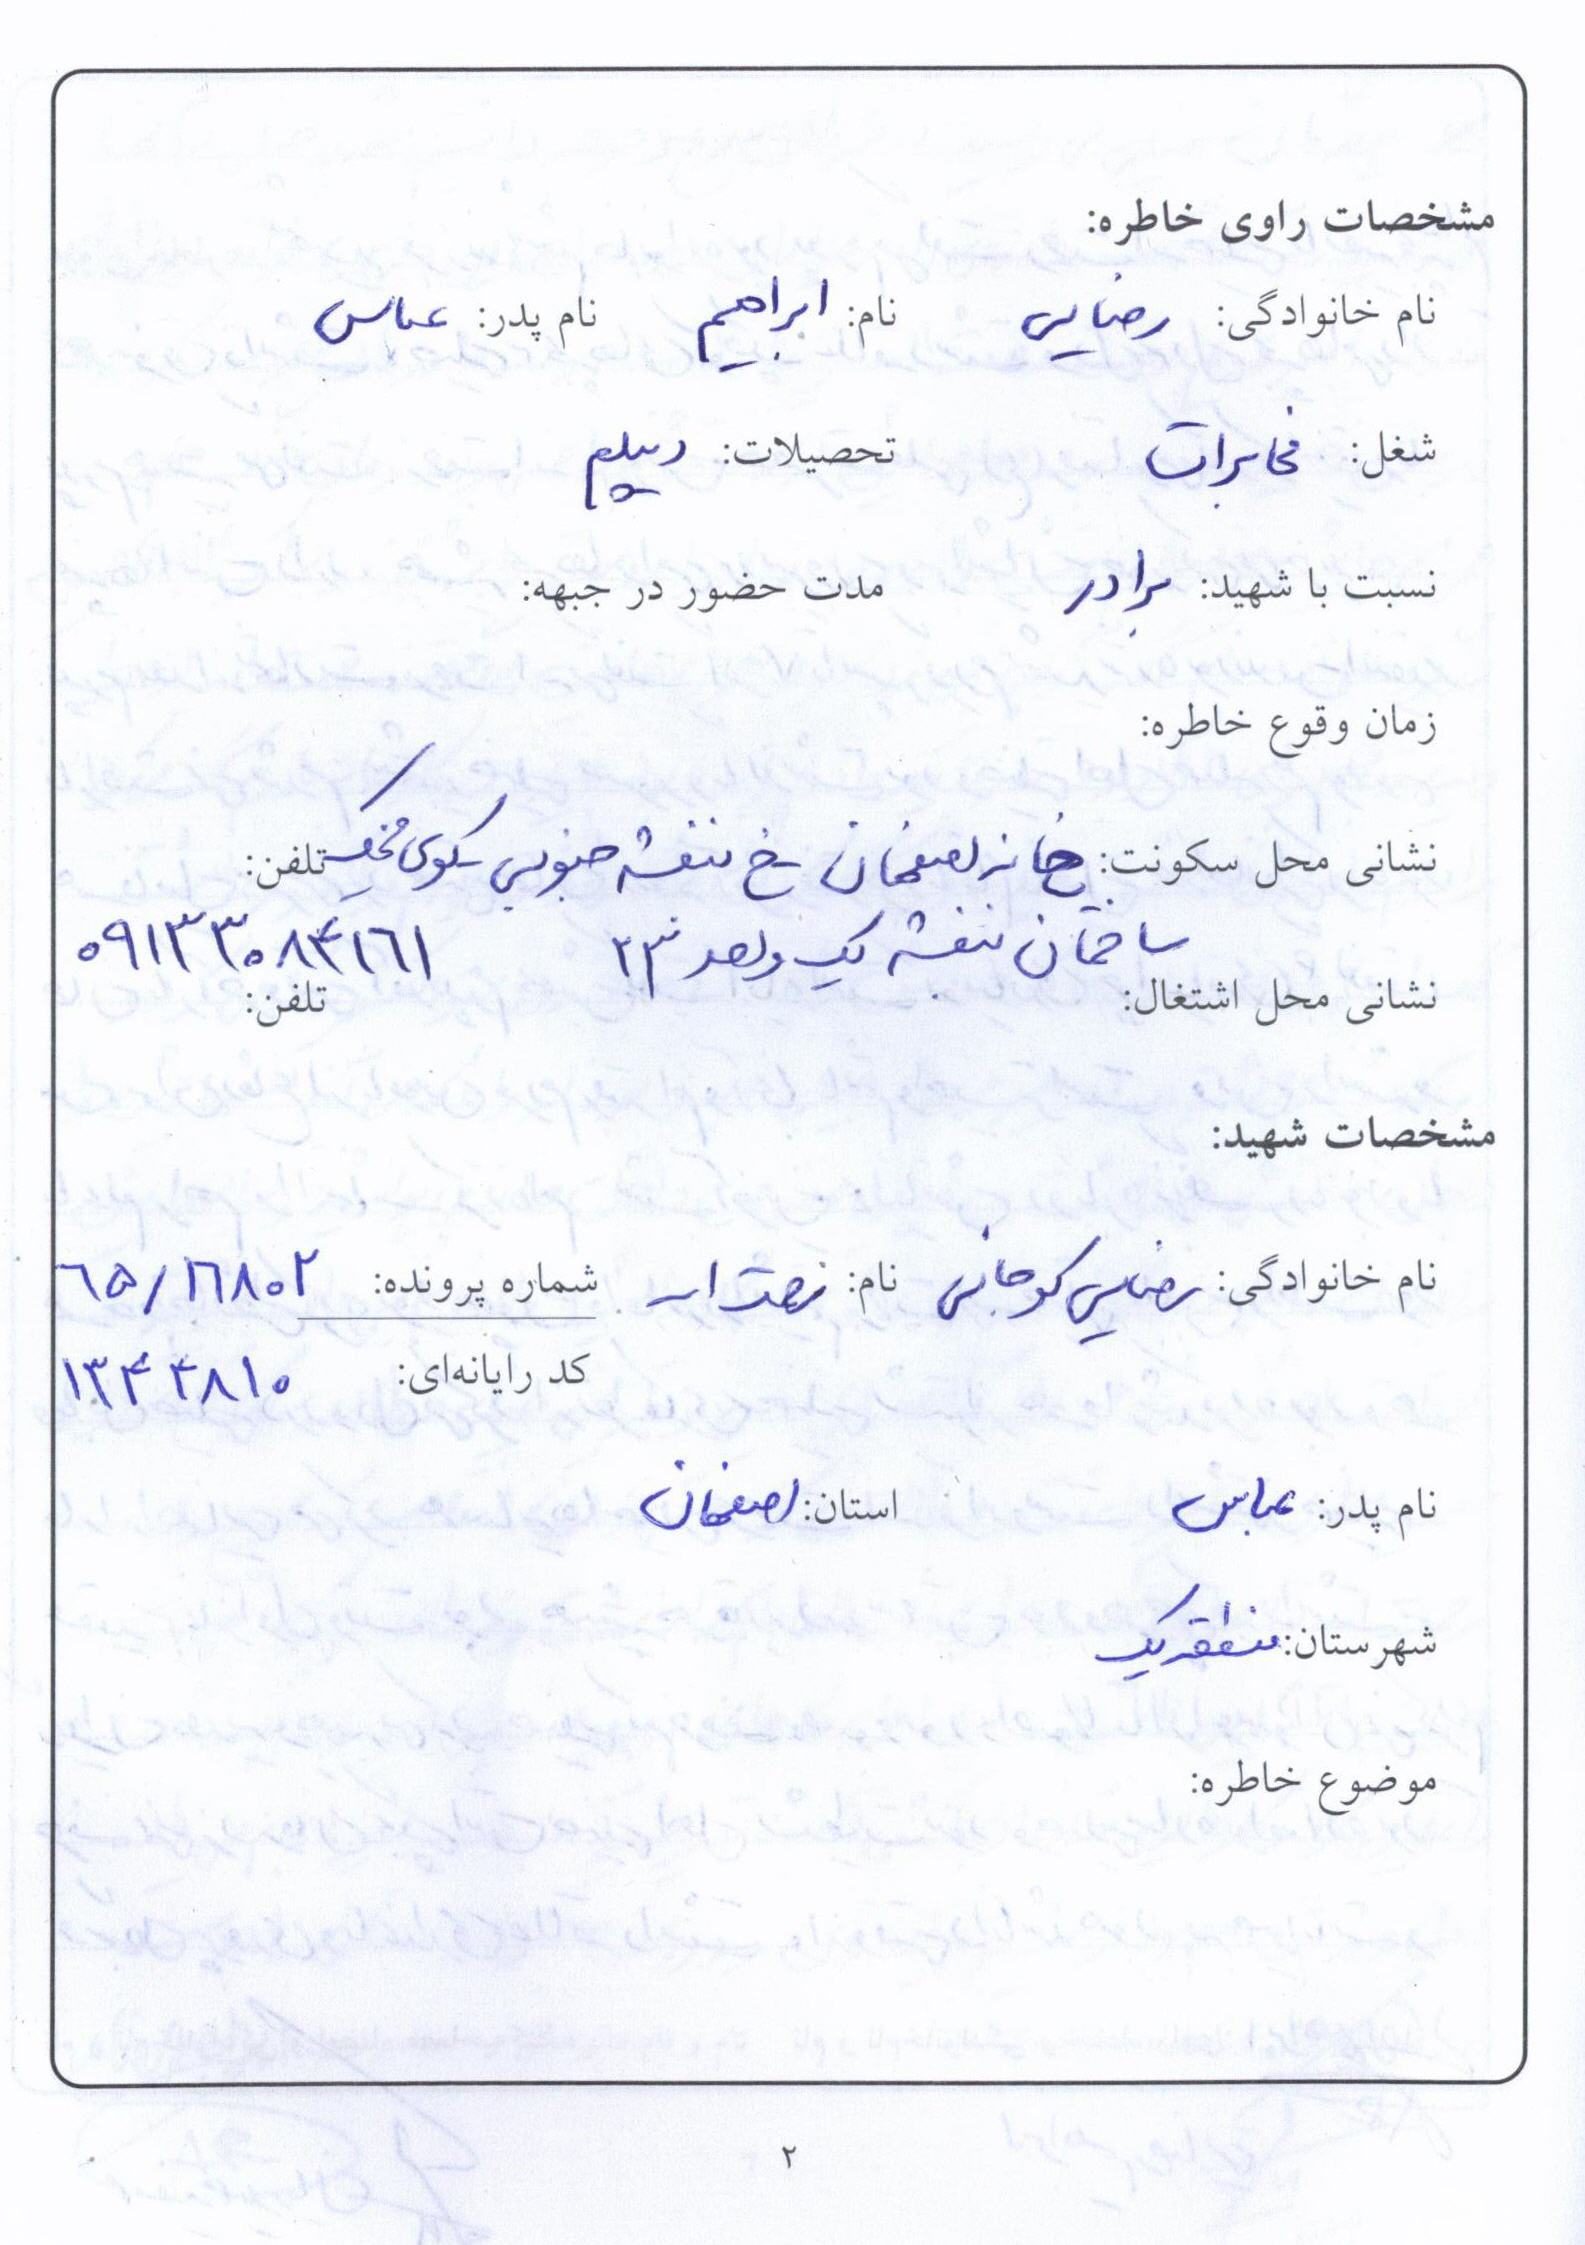 مشخصات راوی خاطره:
نام خانوادگی: رضایی نام: ابراهیم نام پدر: عباس
شغل: مخابرات تحصیلات: دیپلم
نسبت با شهید: برادر مدت حضور در جبهه:
زمان وقوع خاطره:
نشانی محل سکونت: خانه اصفهان خ بنفشه جنوبی کوی تلفن:
ساختمان بنفشه یک واحد ۲۳ ۰۹۱۳۳۰۸۴۱۶۱
نشانی محل اشتغال: تلفن:
مشخصات شهید:
نام خانوادگی: رضایی کوجانی نام: شماره پرونده: ۶۵/۱۶۸۰۲
کد رایانه‌ای: ۱۳۴۴۸۱۰
نام پدر: عباس استان: اصفهان
شهرستان: منطقه یک
موضوع خاطره:
۲